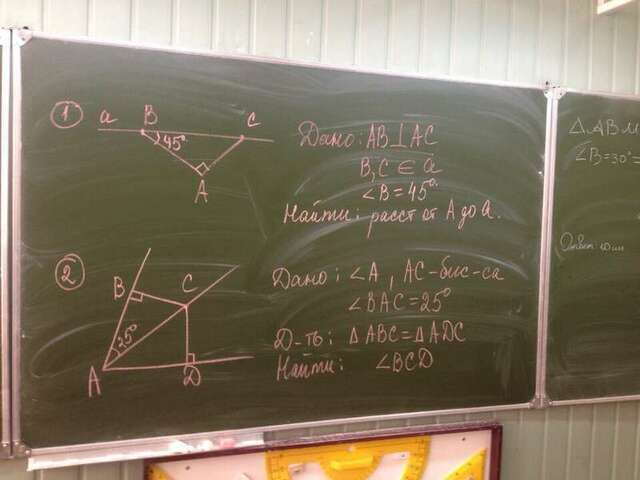 1
a B C
45°
A
Дано: AB⊥AC
B, C ∈ a
∠B=45°
Найти: расст от A до a.
2
B C
25°
A D
Дано: ∠A, AC-бис-са
∠BAC=25°
Д-ть: △ABC=△ADC
Найти: ∠BCD
△ABM
∠B=30°=
Ответ: